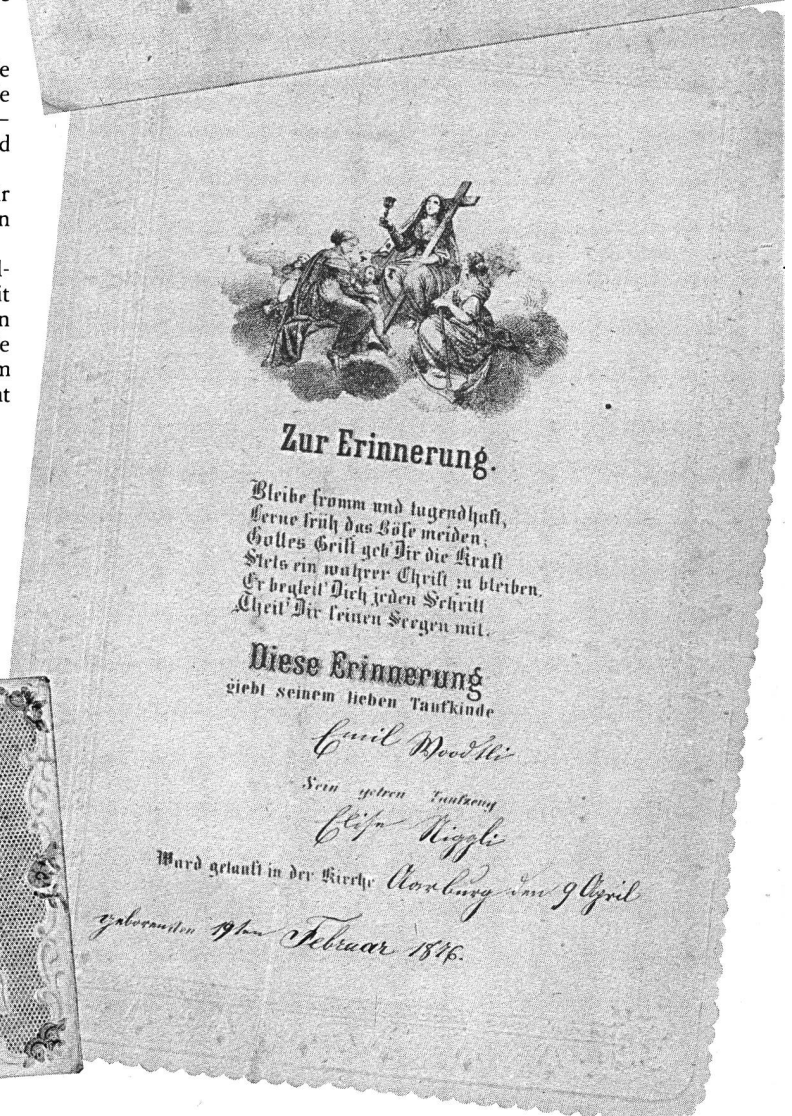 e
e
–
d
r
n
l-
it
n
e
n
nt
Zur Erinnerung.
Bleibe fromm und tugendhaft,
Lerne früh das Böse meiden;
Gottes Geist geb' Dir die Kraft
Stets ein wahrer Christ zu bleiben.
Er begleit' Dich jeden Schritt
Theil' Dir seinen Seegen mit.
Diese Erinnerung
giebt seinem lieben Taufkinde
Emil Woodtli
Sein getreu Taufzeug
Elise Niggli
Ward getauft in der Kirche Aarburg den 9 April
geboren den 19ten Februar 1876.